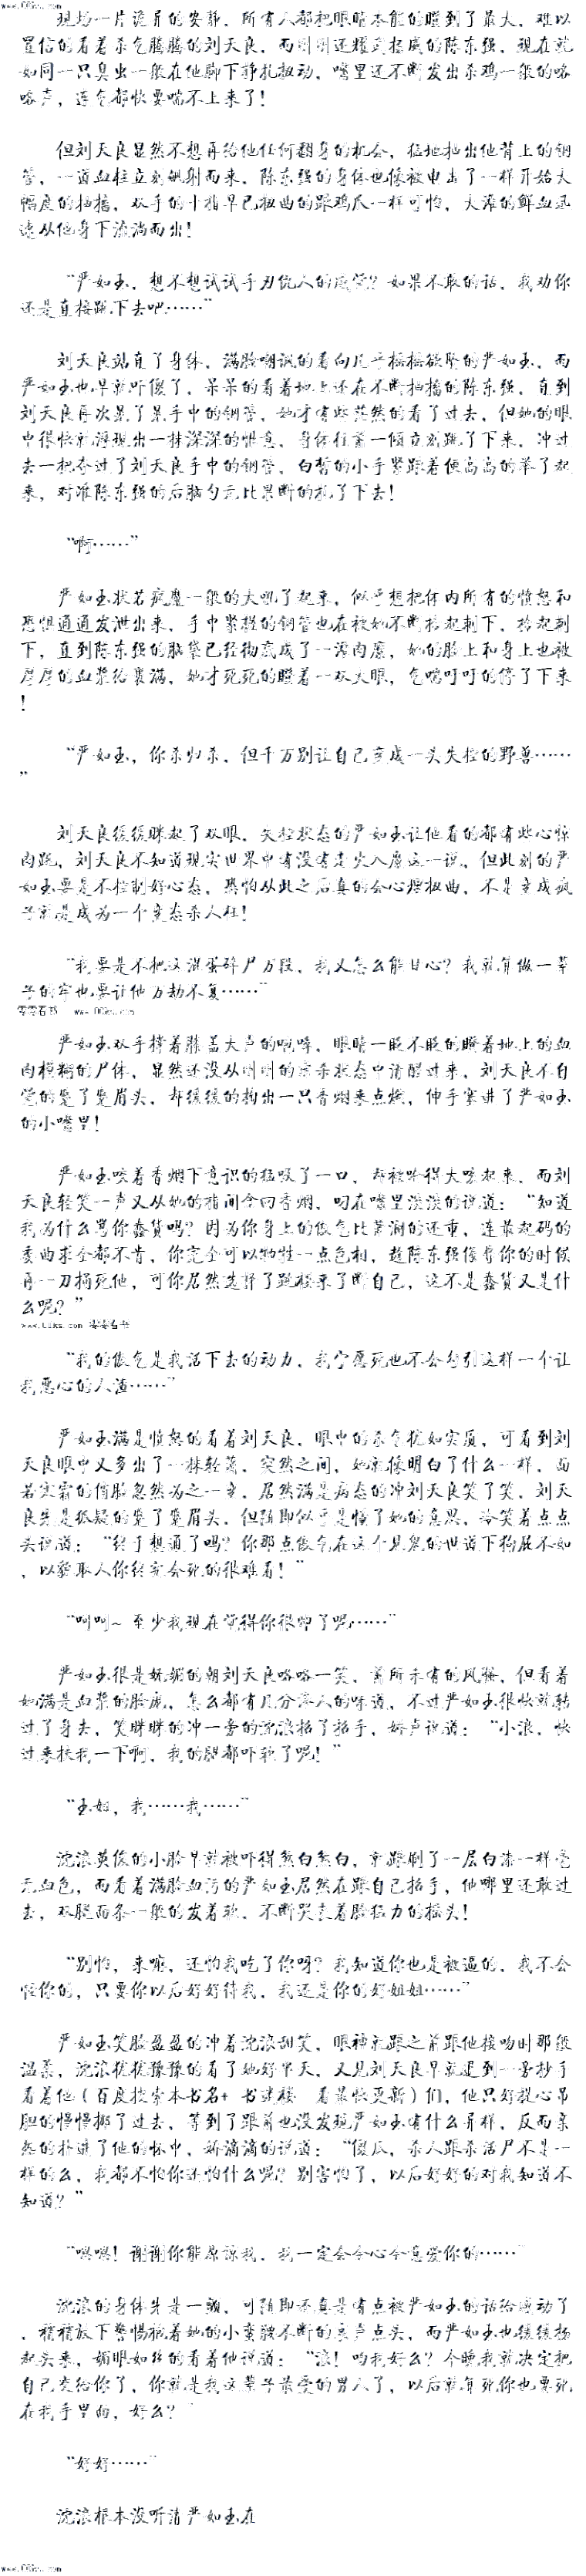 www.00ks.com
现场一片诡异的安静，所有人都把眼睛本能的瞪到了最大，难以
置信的看着杀气腾腾的刘天良，而刚刚还耀武扬威的陈东强，现在就
如同一只臭虫一般在他脚下挣扎扭动，嘴里还不断发出杀鸡一般的咯
咯声，连气都快要喘不上来了！
但刘天良显然不想再给他任何翻身的机会，猛地抽出他背上的钢
管，一道血柱立刻飙射而来，陈东强的身体也像被电击了一样开始大
幅度的抽搐，双手的十指早已扭曲的跟鸡爪一样可怕，大滩的鲜血迅
速从他身下流淌而出！
“严如玉，想不想试试手刃仇人的感觉？如果不敢的话，我劝你
还是直接跳下去吧……”
刘天良站直了身体，满脸嘲讽的看向几乎摇摇欲坠的严如玉，而
严如玉也早就吓傻了，呆呆的看着地上还在不断抽搐的陈东强，直到
刘天良再次晃了晃手中的钢管，她才有些茫然的看了过去，但她的眼
中很快就浮现出一抹深深的恨意，身体往前一倾立刻跳了下来，冲过
去一把夺过了刘天良手中的钢管，白皙的小手紧跟着便高高的举了起
来，对准陈东强的后脑勺无比果断的扎了下去！
“啊……”
严如玉状若疯魔一般的大吼了起来，似乎想把体内所有的愤怒和
恐惧通通发泄出来，手中紧握的钢管也在被她不断拾起刺下，拾起刺
下，直到陈东强的脑袋已经彻底成了一滩肉糜，她的脸上和身上也被
厚厚的血浆给裹满，她才死死的瞪着一双大眼，气喘吁吁的停了下来
！
“严如玉，你杀归杀，但千万别让自己变成一头失控的野兽……
”
刘天良缓缓眯起了双眼，失控状态的严如玉让他看的都有些心惊
肉跳，刘天良不知道现实世界中有没有走火入魔这一说，但此刻的严
如玉要是不控制好心态，恐怕从此之后真的会心理扭曲，不是变成疯
子就是成为一个变态杀人狂！
“我要是不把这混蛋碎尸万段，我又怎么能甘心？我就算做一辈
子的牢也要让他万劫不复……”
零零看书 www.00ks.com
严如玉双手撑着膝盖大声的咆哮，眼睛一眨不眨的瞪着地上的血
肉模糊的尸体，显然还没从刚刚的疯杀状态中清醒过来，刘天良不自
觉的皱了皱眉头，却缓缓的掏出一只香烟来点燃，伸手塞进了严如玉
的小嘴里！
严如玉咬着香烟下意识的猛吸了一口，却被呛得大咳起来，而刘
天良轻笑一声又从她的指间夺回香烟，叼在嘴里淡淡的说道：“知道
我为什么骂你蠢货吗？因为你身上的傲气比萧澜的还重，连最起码的
委曲求全都不肯，你完全可以牺牲一点色相，趁陈东强侮辱你的时候
再一刀捅死他，可你居然选择了跳楼来了断自己，这不是蠢货又是什
么呢？”
www.00ks.com 零零看书
“我的傲气是我活下去的动力，我宁愿死也不会勾引这样一个让
我恶心的人渣……”
严如玉满是愤怒的看着刘天良，眼中的杀气犹如实质，可看到刘
天良眼中又多出了一抹轻蔑，突然之间，她就像明白了什么一样，面
若寒霜的俏脸忽然为之一变，居然满是病态的冲刘天良笑了笑，刘天
良先是狐疑的皱了皱眉头，但随即似乎是懂了她的意思，冷笑着点点
头说道：“终于想通了吗？你那点傲气在这个见鬼的世道下狗屁不如
，以貌取人你终究会死的很难看！”
“呵呵~至少我现在觉得你很帅了呢……”
严如玉很是妩媚的朝刘天良咯咯一笑，前所未有的风骚，但看着
她满是血浆的脸庞，怎么都有几分渗人的味道，不过严如玉很快就转
过了身去，笑眯眯的冲一旁的沈浪招了招手，娇声说道：“小浪，快
过来扶我一下啊，我的腿都吓软了呢！”
“玉姐，我……我……”
沈浪英俊的小脸早就被吓得煞白煞白，就跟刷了一层白漆一样毫
无血色，而看着满脸血污的严如玉居然在跟自己招手，他哪里还敢过
去，双腿面条一般的发着软，不断哭丧着脸猛力的摇头！
“别怕，来嘛，还怕我吃了你呀？我知道你也是被逼的，我不会
怪你的，只要你以后好好待我，我还是你的好姐姐……”
严如玉笑脸盈盈的冲着沈浪甜笑，眼神就跟之前跟他接吻时那般
温柔，沈浪犹犹豫豫的看了她好半天，又见刘天良早就退到一旁抄手
看着他（百度搜索本书名+ 书迷楼 看最快更新）们，他只好提心吊
胆的慢慢挪了过去，等到了跟前也没发现严如玉有什么异样，反而亲
热的扑进了他的怀中，娇滴滴的说道：“傻瓜，杀人跟杀活尸不是一
样的么，我都不怕你还怕什么呢？别害怕了，以后好好的对我知道不
知道？”
“嗯嗯！谢谢你能原谅我，我一定会全心全意爱你的……”
沈浪的身体先是一颤，可随即还真是有点被严如玉的话给感动了
，稍稍放下警惕搂着她的小蛮腰不断的哀声点头，而严如玉也缓缓扬
起头来，媚眼如丝的看着他说道：“浪！吻我好么？今晚我就决定把
自己交给你了，你就是我这辈子最爱的男人了，以后就算死你也要死
在我手里面，好么？”
“好好……”
沈浪根本没听清严如玉在
www.00ks.com